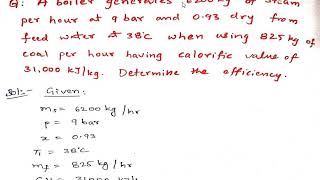 Q: A boiler generates 6200 kg of steam
per hour at 9 bar and 0.93 dry from
feed water @ 38°C when using 825 kg of
coal per hour having calorific value of
31,000 kJ/kg. Determine the efficiency.
Sol:- Given:
ms = 6200 kg/hr
p = 9 bar
x = 0.93
T1 = 38°C
mf = 825 kg/hr